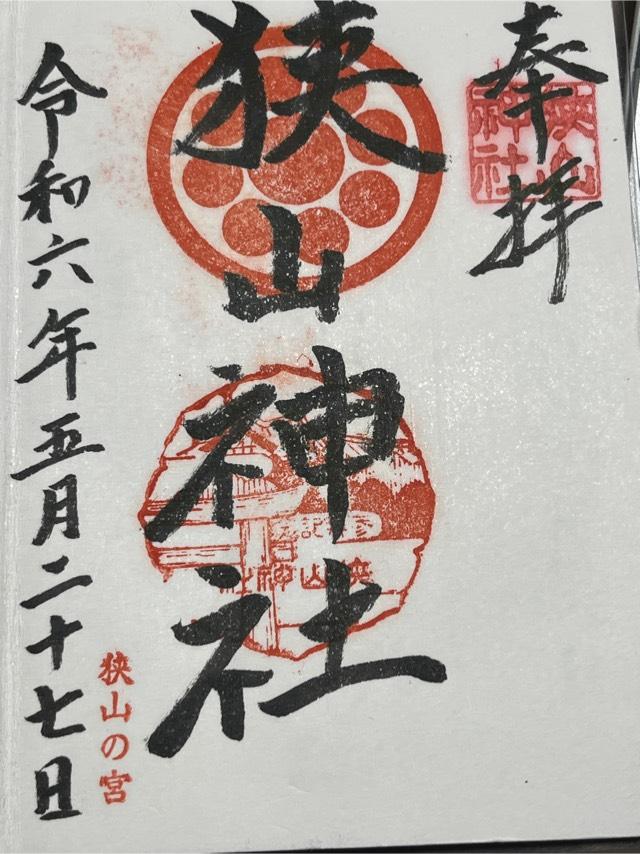 奉拝
狭山
神社
狭山神社
狭山神社
令和六年五月二十七日
狭山の宮